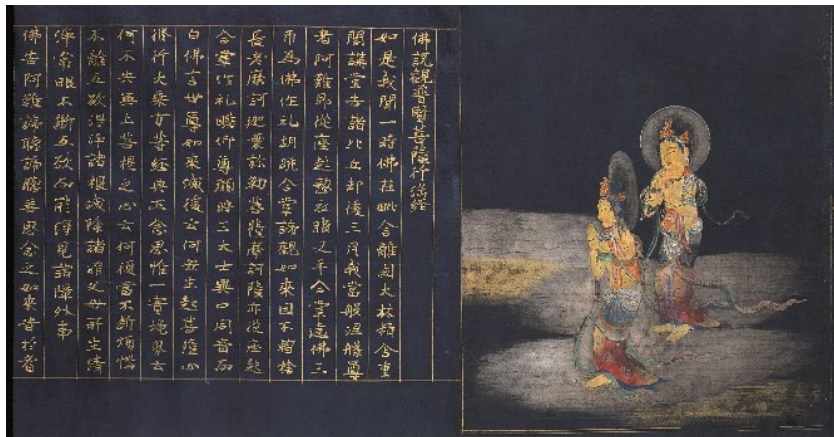 佛説觀普賢菩薩行法經
如是我聞一時佛在毗舍離國大林精舍重
閣講堂告諸比丘却後三月我當般涅槃尊
者阿難即從座起整衣服叉手合掌遶佛三
帀為佛作礼胡跪合掌諦觀如來目不暫捨
長老摩訶迦葉弥勒菩薩摩訶薩亦從座起
合掌作礼瞻仰尊顔時三大士異口同音而
白佛言世尊如來滅後云何衆生起菩薩心
修行大乘方等經典正念思惟一實境界云
何不失無上菩提之心云何復當不斷煩惱
不離五欲得淨諸根滅除諸罪父母所生清
淨常眼不斷五欲而能得見諸障外事
佛告阿難諦聽諦聽善思念之如來昔於耆